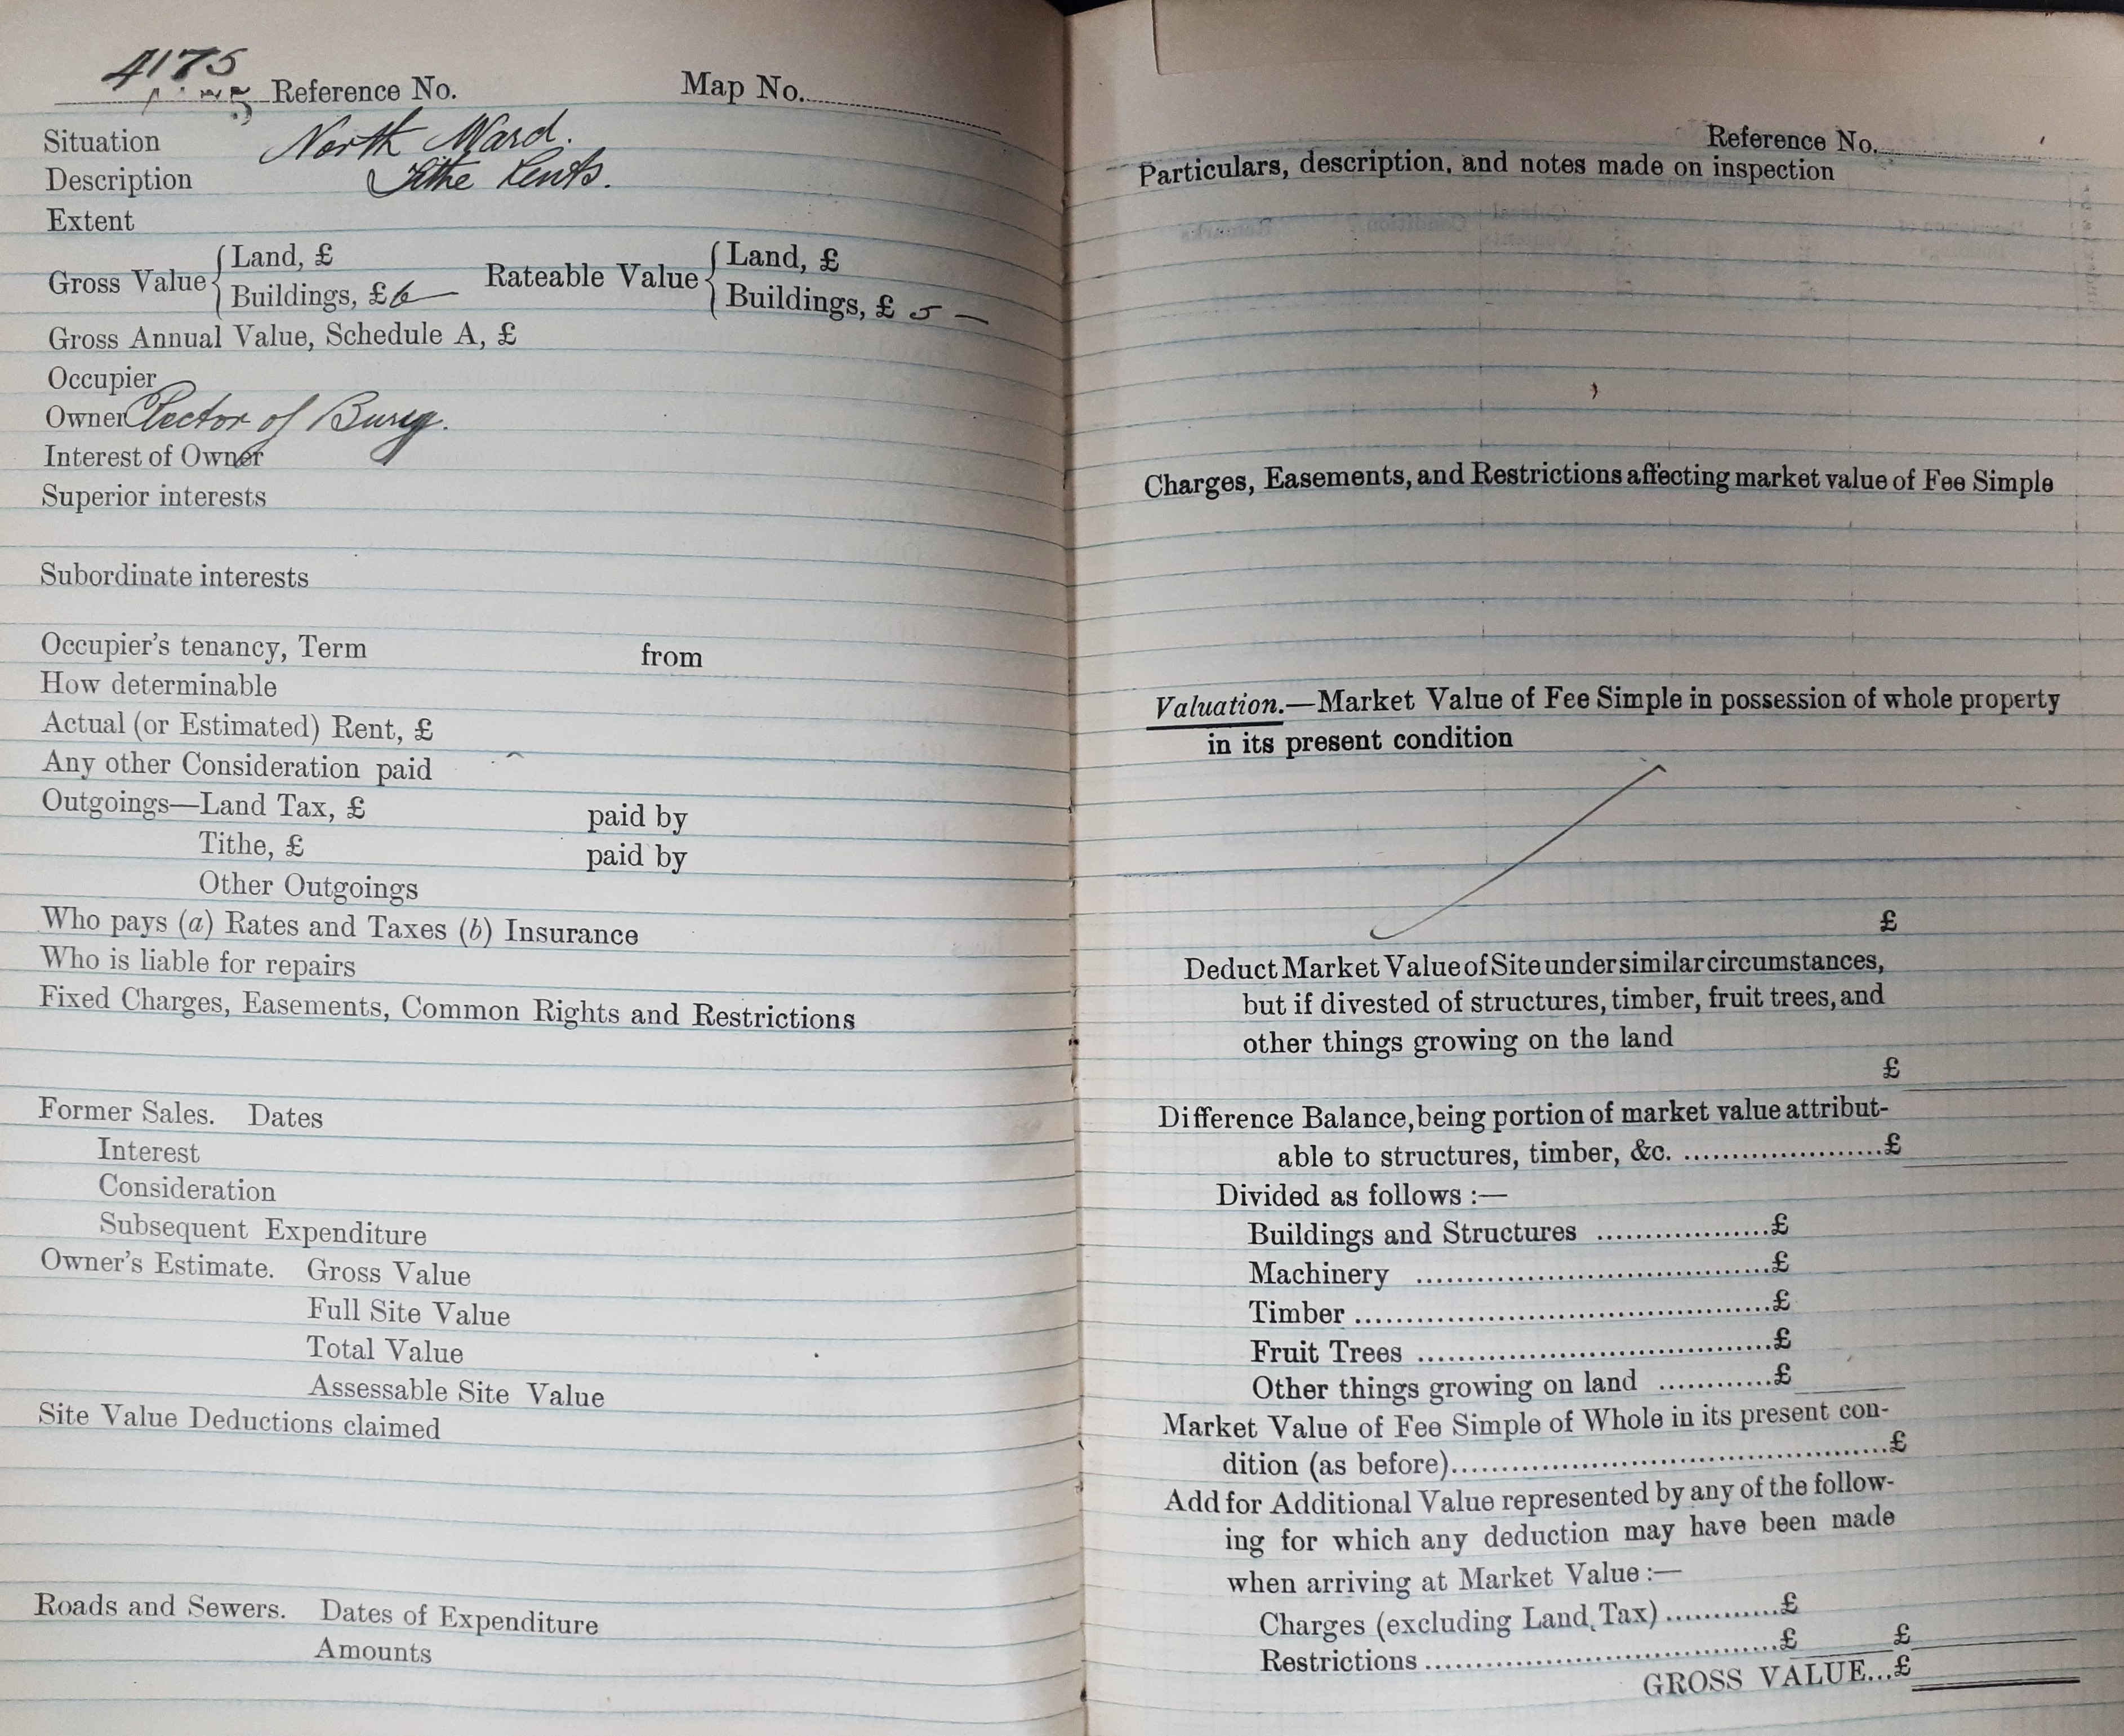 4175
Reference No. Map No.
Situation North Ward.
Description Tithe Rents.
Extent
Gross Value { Land, £ Rateable Value { Land, £
Buildings, £ 6 — Buildings, £ 5 —
Gross Annual Value, Schedule A, £
Occupier
Owner Rector of Bury.
Interest of Owner
Superior interests
Subordinate interests
Occupier's tenancy, Term from
How determinable
Actual (or Estimated) Rent, £
Any other Consideration paid
Outgoings—Land Tax, £ paid by
Tithe, £ paid by
Other Outgoings
Who pays (a) Rates and Taxes (b) Insurance
Who is liable for repairs
Fixed Charges, Easements, Common Rights and Restrictions
Former Sales. Dates
Interest
Consideration
Subsequent Expenditure
Owner's Estimate. Gross Value
Full Site Value
Total Value
Assessable Site Value
Site Value Deductions claimed
Roads and Sewers. Dates of Expenditure
Amounts
Reference No.
Particulars, description, and notes made on inspection
Charges, Easements, and Restrictions affecting market value of Fee Simple
Valuation.—Market Value of Fee Simple in possession of whole property
in its present condition
£
Deduct Market Value of Site under similar circumstances,
but if divested of structures, timber, fruit trees, and
other things growing on the land
£
Difference Balance, being portion of market value attribut-
able to structures, timber, &c. ......................£
Divided as follows :—
Buildings and Structures ..................£
Machinery ....................................£
Timber ..........................................£
Fruit Trees ....................................£
Other things growing on land ............£
Market Value of Fee Simple of Whole in its present con-
dition (as before)............................................£
Add for Additional Value represented by any of the follow-
ing for which any deduction may have been made
when arriving at Market Value :—
Charges (excluding Land Tax) ............£
Restrictions ....................................£ £
GROSS VALUE...£